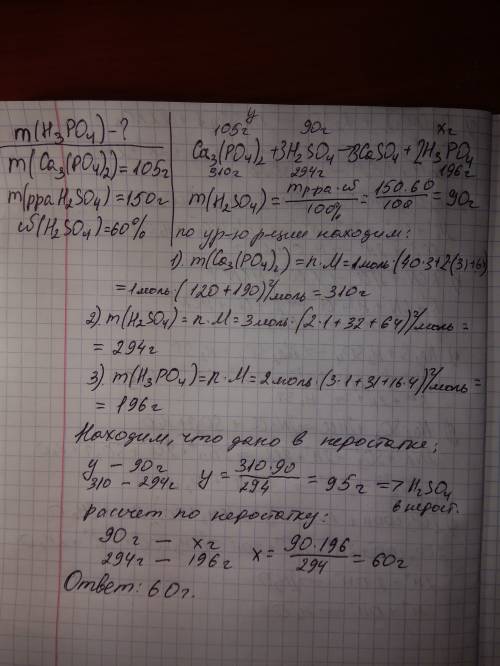 m(H₃PO₄)-?
m(Ca₃(PO₄)₂)=105г
m(рра H₂SO₄)=150г
ω(H₂SO₄)=60%
у
105г 90г хг
Ca₃(PO₄)₂+3H₂SO₄→3CaSO₄+2H₃PO₄
310г 294г 196г
m(H₂SO₄)= mрра·ω/100% = 150·60/100 =90г
по ур-ю р-ции находим:
1). m(Ca₃(PO₄)₂)=n·M=1моль·(40·3+2(31+64)
=1моль·(120+190)г/моль=310г
2) m(H₂SO₄)=n·M=3моль·(2·1+32+64)г/моль=
=294г
3). m(H₃PO₄)=n·M=2моль·(3·1+31+16·4)г/моль=
=196г
Находим, что дано в неростатке;
у – 90г
310 – 294г у= 310·90/294 =95г => H₂SO₄
в нерост.
рассчет по неростатку:
90г – хг
294г – 196г х= 90·196/294 =60г
Ответ: 60г.